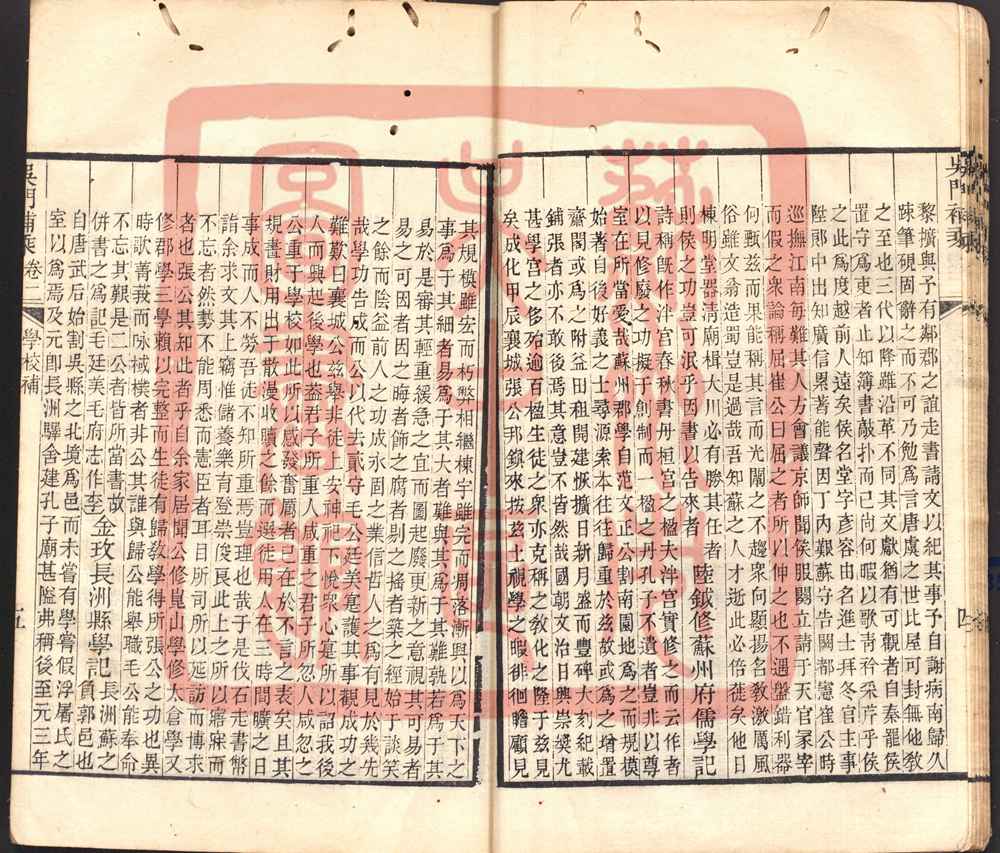 吳門補乘
黎擴與予有鄰郡之誼走書請文以紀其事予自謝病南歸久
踈筆硯固辭之而不可乃勉爲言唐虞之世比屋可封無他敎
之至也三代以降雖沿革不同其文獻猶有可觀者自秦罷侯
置守爲吏者止知簿書敲扑而已尚何暇以歌靑衿采芹乎侯
之此爲度越前人遠矣侯名堂字彥容由名進士拜冬官主事
陞郞中出知廣信畧著能聲因丁內艱蘇守告闕都憲崔公時
巡撫江南每難其人方會議京師聞侯服闋立請于天官冢宰
而假之衆論稱屈崔公曰屈之者所以伸之也不遇盤錯利器
何甄兹而果能稱其言於光闡之不趨衆向顯揚名敎激厲風
俗雖文翁造蜀豈是過哉吾知蘇之人才逝此必倍蓰矣他日
棟明堂器淸廟楫大川必有勝其任者　陸鉞修蘇州府儒學記
則侯之功豈可泯乎因書以告來者
詩稱旣作泮宮春秋書丹桓宮之楹夫泮宮實修之而云作者
以見修廢之功擬于創制而一楹之丹孔子不遺者豈非以尊
室在所當愛哉蘇州郡學自范文正公割南園地爲之而規模
始著自後好義之士尋源索本往往歸重於兹故武爲之增置
齋閣或爲之附益田租開閎建恢擴日新月盛豐碑大刻紀載
鋪張者亦不敢後焉其意豈不皆然哉國朝文治日興崇奬尤
甚學宮之侈茆逾百楹生徒之衆亦克稱之敎化之隆于兹見
矣成化甲辰襄城張公邦鎭來按兹土視學之暇徘徊瞻顧見
四
其規模雖宏而朽弊相繼棟宇雖完而凋落漸興以爲天下之
事爲于其細者易爲于其大者難與其爲于其難孰若爲于其
易於是審其輕重緩急之宜而圖起廢更新之意視其可易者
易之可因者因之晦者飾之腐者剔之撓者築之經始于談笑
之餘而陰益前人之功成永固之業信哲人之爲有見於幾先
哉學功告成而公以代去貳守毛公廷美寔護其事觀成功之
難歎曰襄城公兹舉非徒上安神祠下愜衆心寔所以詔我後
人而興起後學也葢君子所重人咸重之君子所忽人咸忽之
公重于學校如此所以感發奮厲者已在於不言之表矣且其
規畫財用出于散漫收贖之餘而選徒用人在三時間曠之日
事成而人不勞吾徒不知所重焉豈理也哉于是伐石走書幣
詣余求文其上竊惟儲養樂育登崇俊艮此上之所以寤寐而
不忘者然勢不能周悉而憲臣者耳目所司所以延訪而博求
者也張公其知此者乎自余家居聞公修崑山學修太倉學又
修郡學三學賴以完整而生徒有歸敎學得所張公之功也異
時歌菁莪而咏棫樸者非公其誰與歸公能舉職毛公能奉命
不忘其艱是二公者皆所當書故
併書之爲記毛廷美毛府志作李　金玫長洲縣學記　長洲蘇之負郭邑也
自唐武后始割吳縣之北境爲邑而未嘗有學嘗假浮屠氏之
室以爲焉及元卽長洲驛舍建孔子廟甚隘弗稱後至元三年
吳門補乘　卷二　學校補
五